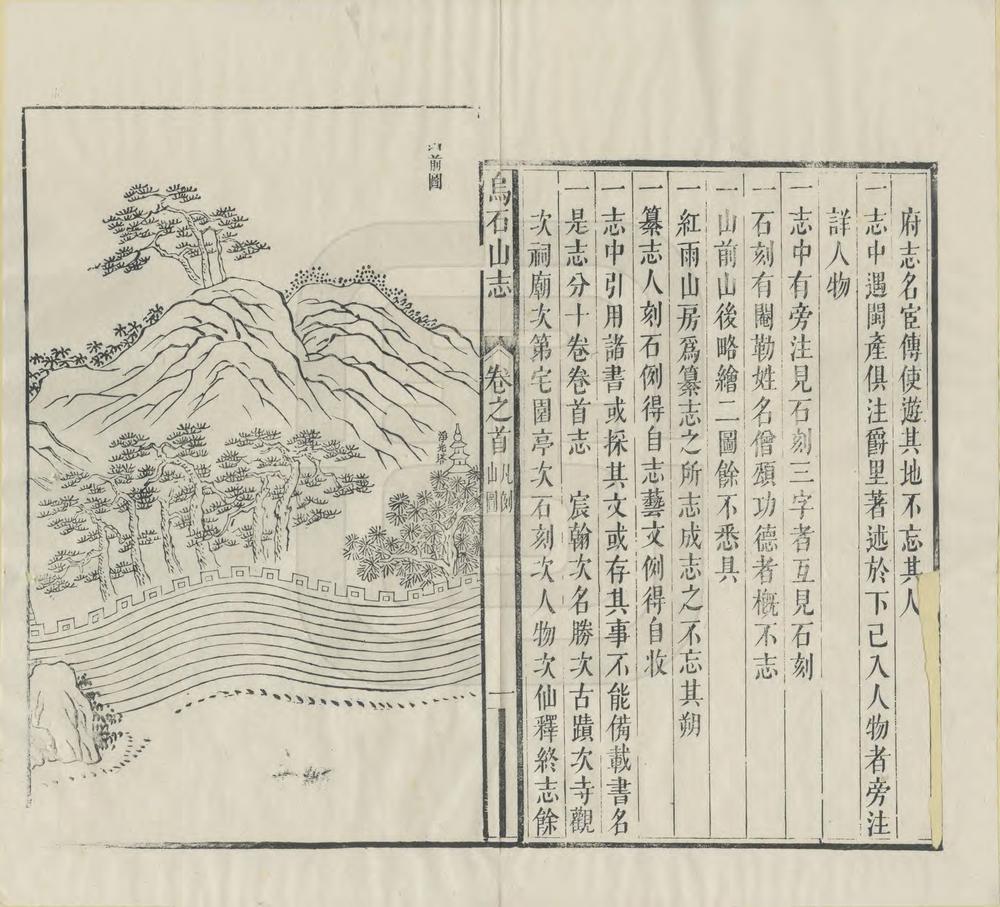 府志名宦傳使遊其地不忘其人
一志中遇閩產俱注爵里著述於下已入人物者旁注
詳人物
一志中有旁注見石刻三字者互見石刻
一石刻有閹勒姓名僧頌功德者槪不志
一山前山後略繪二圖餘不悉具
一紅雨山房爲纂志之所志成志之不忘其朔
一纂志人刻石例得自志藝文例得自收
一志中引用諸書或採其文或存其事不能備載書名
一是志分十卷卷首志 宸翰次名勝次古蹟次寺觀
次祠廟次第宅園亭次石刻次人物次仙釋終志餘
烏石山志 卷之首 凡例 山圖 一
山前圖
淨光塔